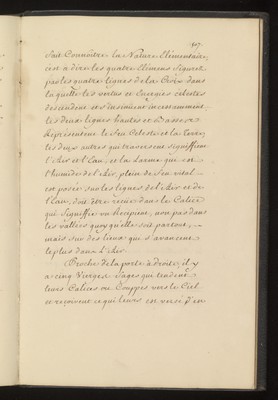 107.
fait Connoître la Nature Elémentaire,
c'est à dire les quatre Elémens figurés
par les quatre lignes de la Croix dans
laquelle les vertus et Energies célestes
descendent et s'insinuent incessamment
les deux lignes hautes et basses
représentent le feu Celeste et la Terre,
les deux autres qui traversent signiffient
l'Air et l'Eau, et la Larme que est
l'humide de l'Air, plein de feu vital
est posée sur les lignes de l'Air et de
l'Eau, doit être reçue dans le Calice
qui signiffie un Recipient, non pas dans
les vallées quoy qu'elle soit partout,
mais sur des lieux qui s'avancent
le plus dans l'Air
Proche de la porte à droite, il y
a cinq Vierges sages qui tendent
leurs Calices ou Couppes vers le Ciel
et reçoivent ce qui leurs est versé d'en